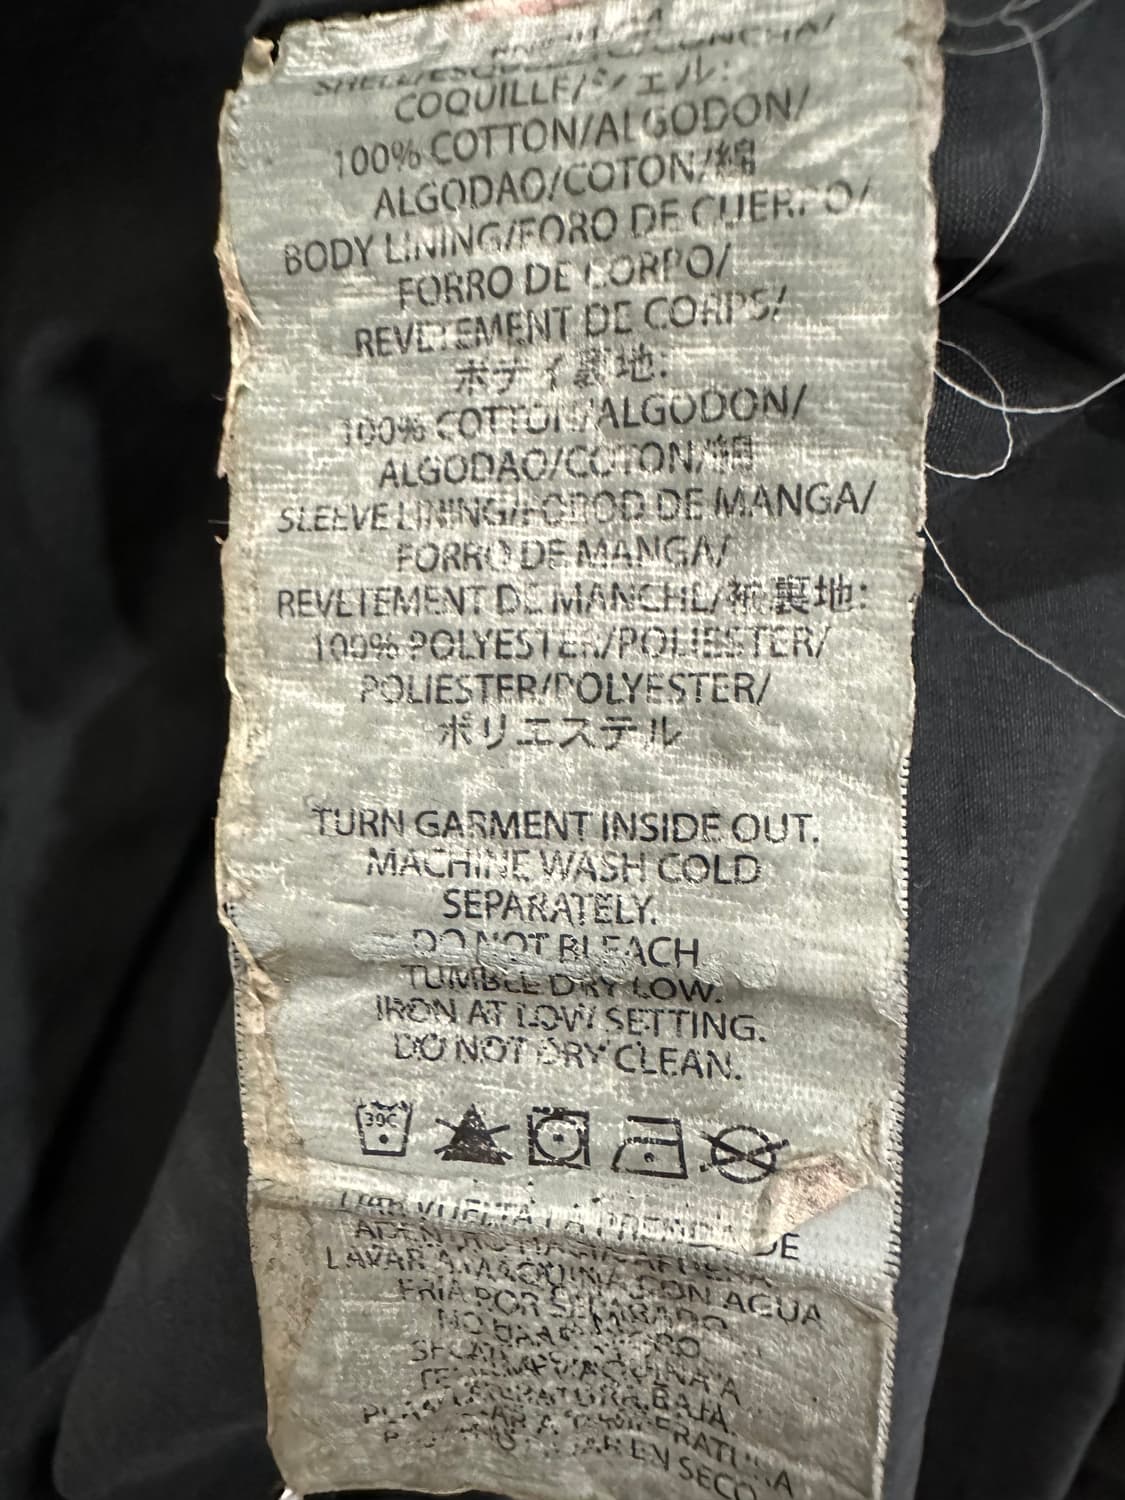 SHELL/ESQUELETO/CONCHA/
COQUILLE/シェル:
100% COTTON/ALGODON/
ALGODAO/COTON/綿
BODY LINING/FORO DE CUERPO/
FORRO DE CORPO/
REVETEMENT DE CORPS/
ボディ裏地:
100% COTTON/ALGODON/
ALGODAO/COTON/綿
SLEEVE LINING/FOROD DE MANGA/
FORRO DE MANGA/
REVETEMENT DE MANCHE/袖裏地:
100% POLYESTER/POLIESTER/
POLIESTER/POLYESTER/
ポリエステル
TURN GARMENT INSIDE OUT.
MACHINE WASH COLD
SEPARATELY.
DO NOT BLEACH
TUMBLE DRY LOW.
IRON AT LOW SETTING.
DO NOT DRY CLEAN.
30C
VUELTA LA PRENDA DE
ADENTRO HACIA AFUERA
LAVAR A MAQUINA CON AGUA
FRIA POR SEPARADO
NO
SECAR A MAQUINA A
TEMPERATURA BAJA.
A TEMPERATURA
EN SECO